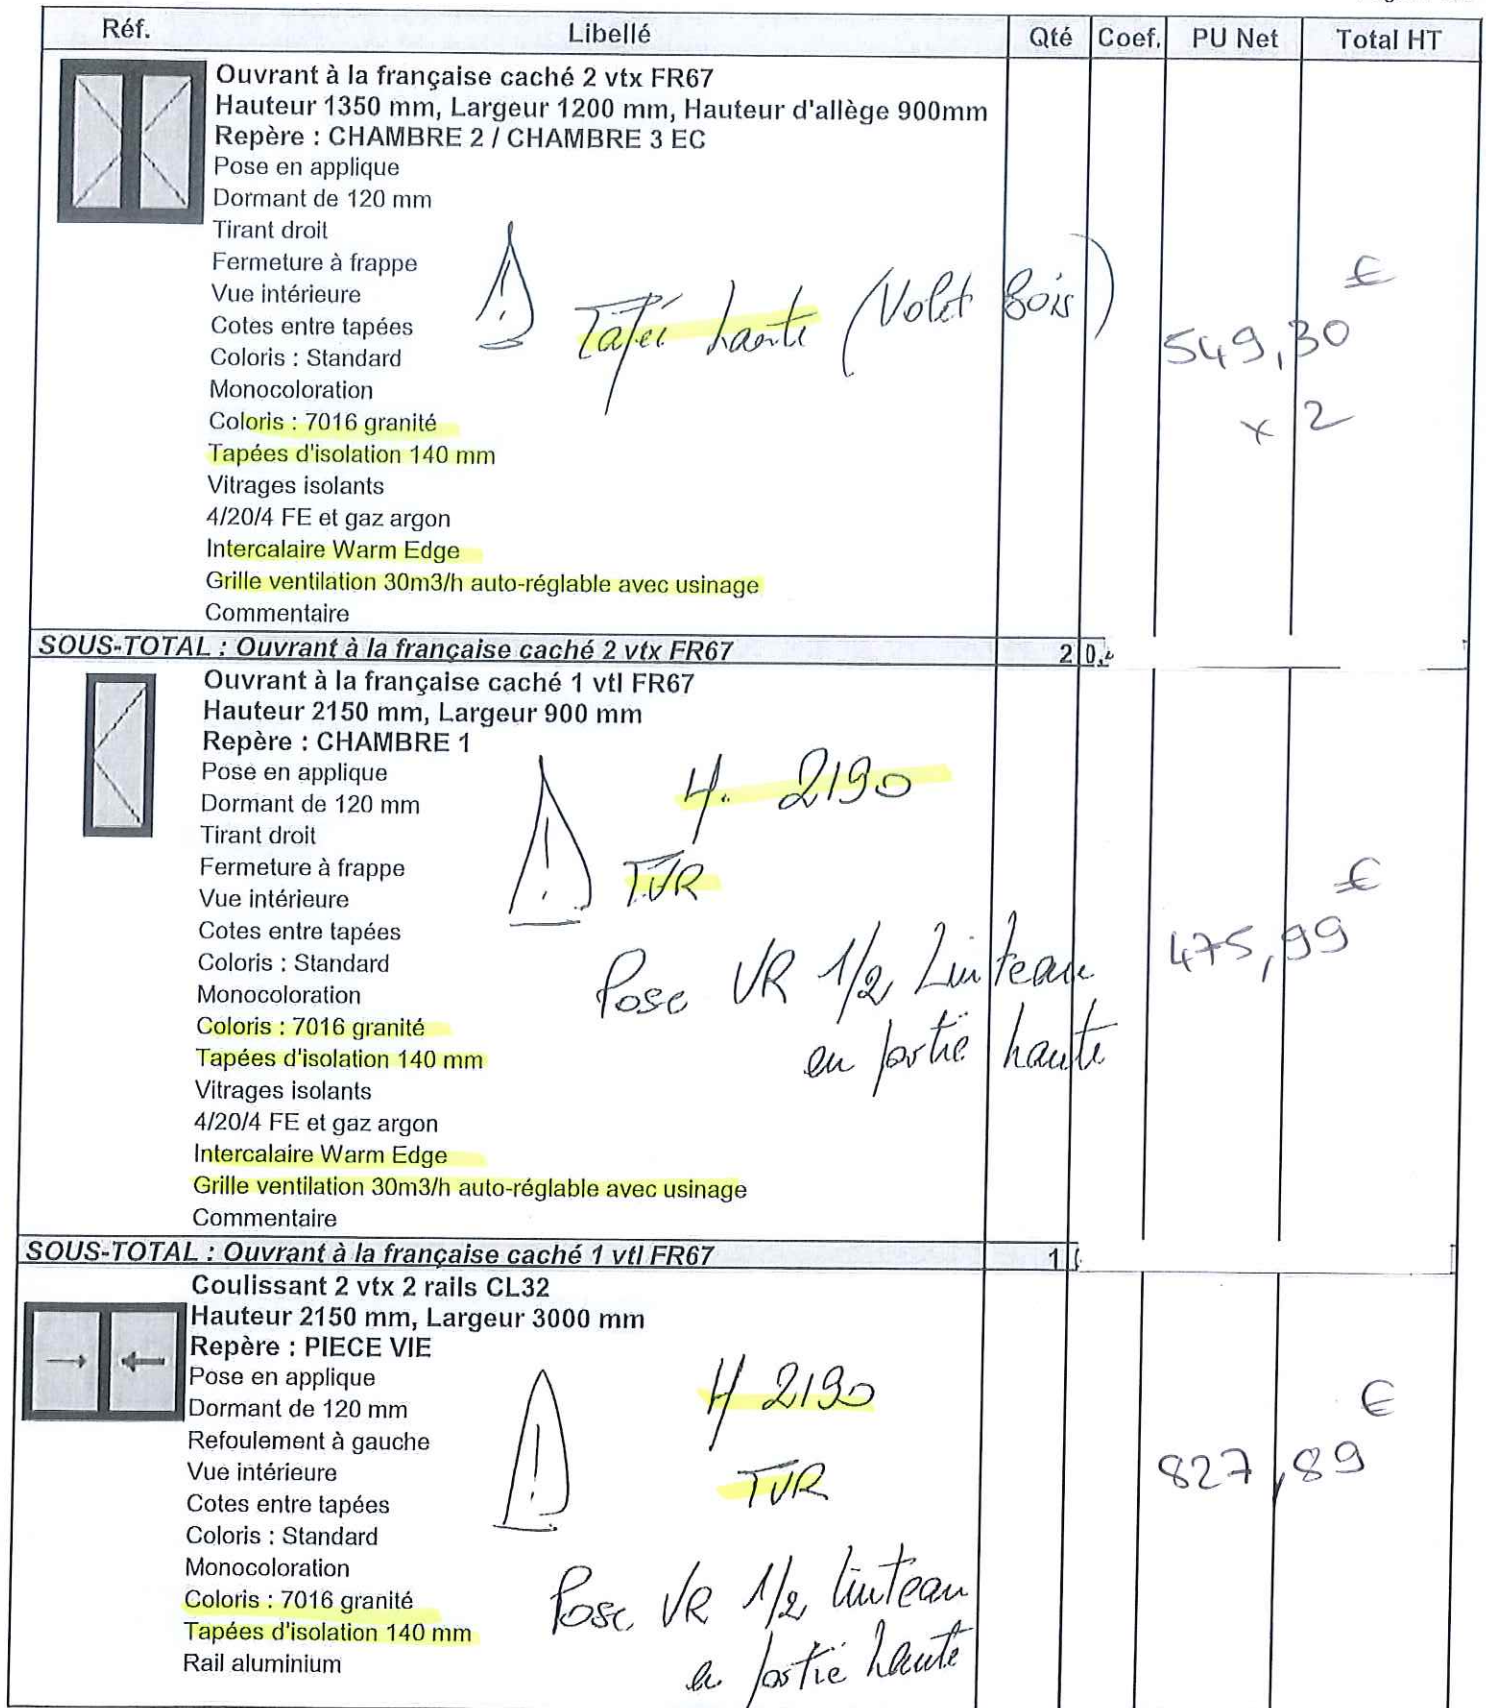 Réf. Libellé Qté Coef. PU Net Total HT
Ouvrant à la française caché 2 vtx FR67
Hauteur 1350 mm, Largeur 1200 mm, Hauteur d'allège 900mm
Repère : CHAMBRE 2 / CHAMBRE 3 EC
Pose en applique
Dormant de 120 mm
Tirant droit
Fermeture à frappe
Vue intérieure
Cotes entre tapées
Coloris : Standard
Monocoloration
Coloris : 7016 granité
Tapées d'isolation 140 mm
Vitrages isolants
4/20/4 FE et gaz argon
Intercalaire Warm Edge
Grille ventilation 30m3/h auto-réglable avec usinage
Commentaire
! haute (Volet Bois)
€
549,30
x 2
SOUS-TOTAL : Ouvrant à la française caché 2 vtx FR67 2 0,
Ouvrant à la française caché 1 vtl FR67
Hauteur 2150 mm, Largeur 900 mm
Repère : CHAMBRE 1
Pose en applique
Dormant de 120 mm
Tirant droit
Fermeture à frappe
Vue intérieure
Cotes entre tapées
Coloris : Standard
Monocoloration
Coloris : 7016 granité
Tapées d'isolation 140 mm
Vitrages isolants
4/20/4 FE et gaz argon
Intercalaire Warm Edge
Grille ventilation 30m3/h auto-réglable avec usinage
Commentaire
H. 2190
! TVR
Pose VR 1/2 Linteau
en partie haute
€
475,99
SOUS-TOTAL : Ouvrant à la française caché 1 vtl FR67 1
Coulissant 2 vtx 2 rails CL32
Hauteur 2150 mm, Largeur 3000 mm
Repère : PIECE VIE
Pose en applique
Dormant de 120 mm
Refoulement à gauche
Vue intérieure
Cotes entre tapées
Coloris : Standard
Monocoloration
Coloris : 7016 granité
Tapées d'isolation 140 mm
Rail aluminium
H 2190
! TVR
Pose VR 1/2 linteau
en partie haute
€
827,89